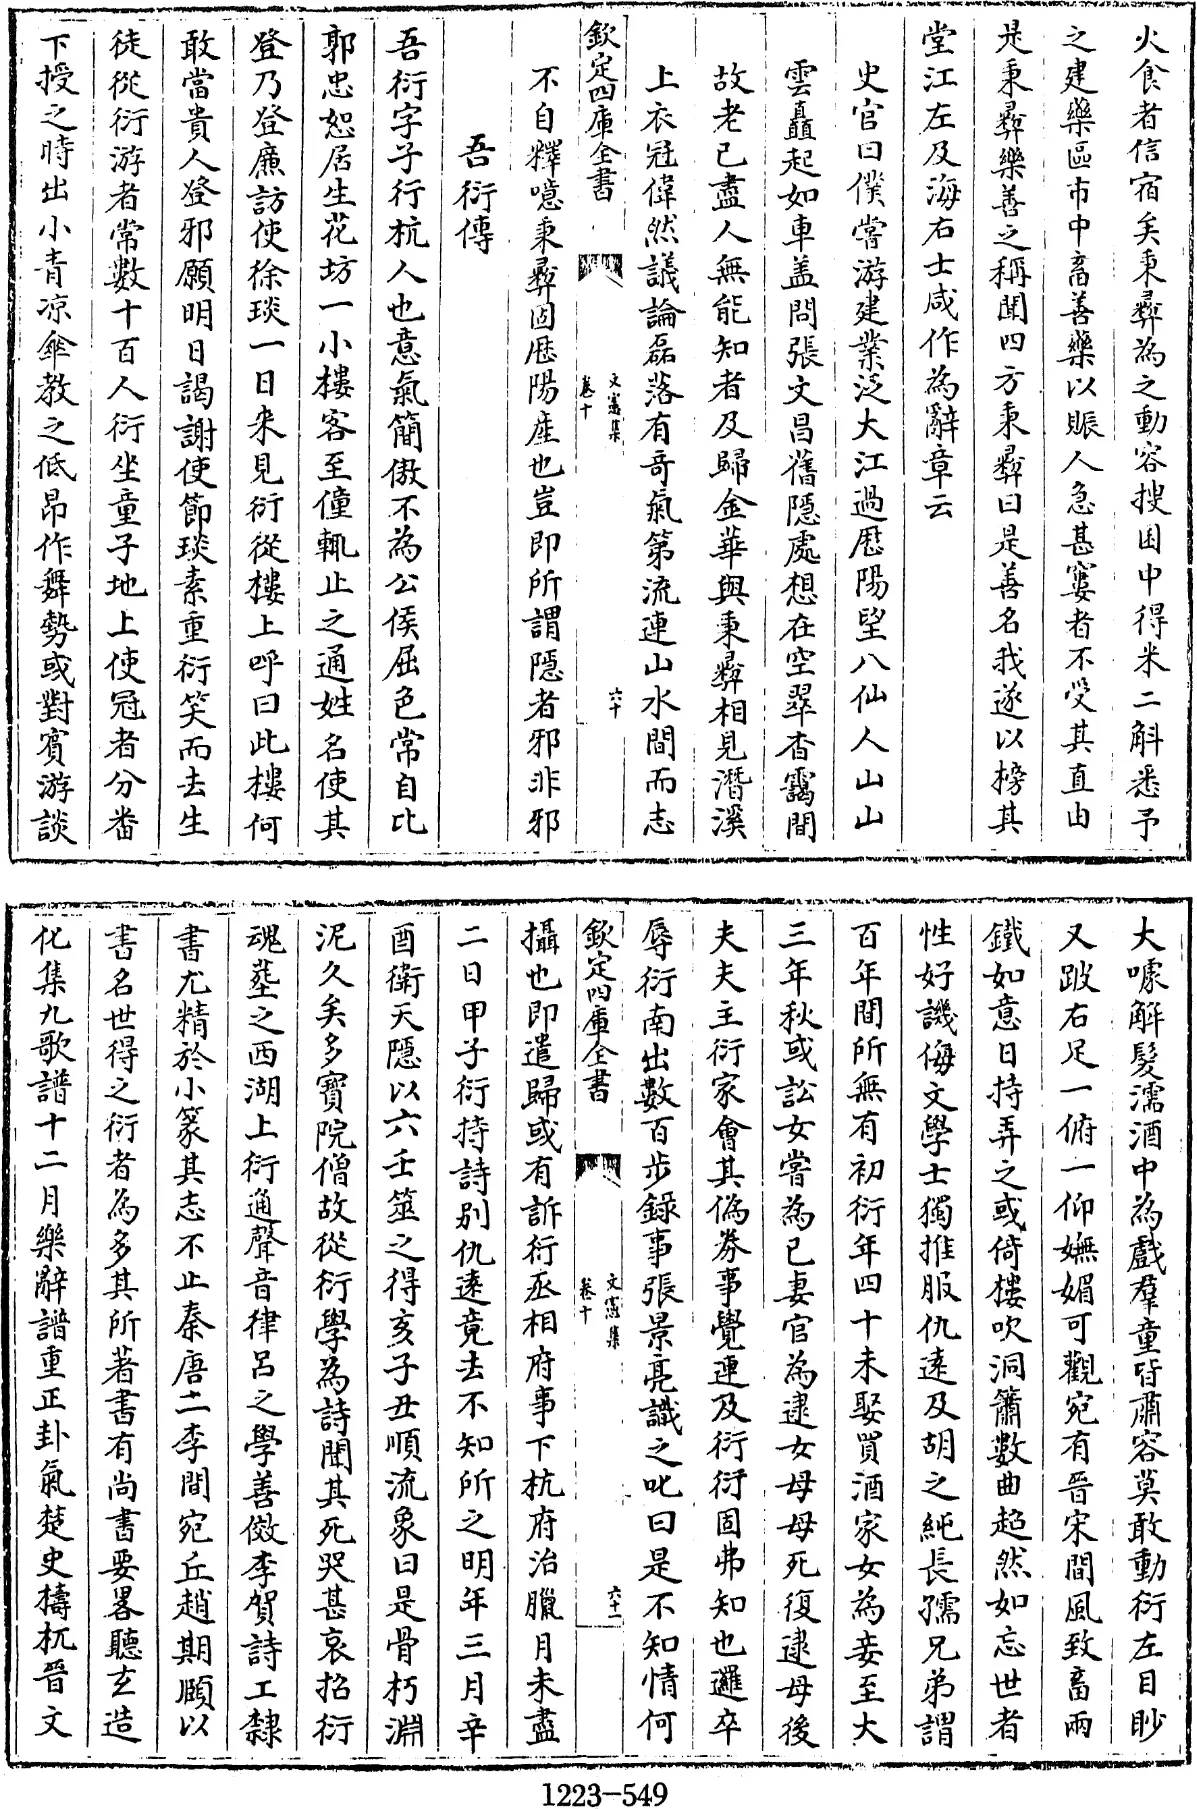 火食者信宿矣秉彛為之動容搜囷中得米二斛悉予
之建藥區市中畜善藥以賑人急甚窶者不受其直由
是秉彛樂善之稱聞四方秉彛曰是善名我遂以榜其
堂江左及海右士咸作為辭章云
史官曰僕嘗游建業泛大江過厯陽望八仙人山山
雲矗起如車盖問張文昌舊隱處想在空翠杳靄間
故老已盡人無能知者及歸金華與秉彛相見潛溪
上衣冠偉然議論磊落有奇氣第流連山水間而志
欽定四庫全書
文憲集
卷十
六十
不自釋噫秉彛固厯陽産也豈即所謂隱者邪非邪
吾衍傳
吾衍字子行杭人也意氣簡傲不為公侯屈色常自比
郭忠恕居生花坊一小樓客至僮輒止之通姓名使其
登乃登廉訪使徐琰一日来見衍從樓上呼曰此樓何
敢當貴人登邪願明日謁謝使節琰素重衍笑而去生
徒從衍游者常數十百人衍坐童子地上使冠者分畨
下授之時出小青凉傘教之低昂作舞勢或對賓游談
大噱解髮濡酒中為戲羣童皆肅容莫敢動衍左目眇
又跛右足一俯一仰嫵媚可觀宛有晉宋間風致畜兩
鐵如意日持弄之或倚樓吹洞簫數曲超然如忘世者
性好譏侮文學士獨推服仇逺及胡之純長孺兄弟謂
百年間所無有初衍年四十未娶買酒家女為妾至大
三年秋或訟女嘗為已妻官為逮女母母死復逮母後
夫夫主衍家會其偽劵事覺連及衍衍固弗知也邏卒
辱衍南出數百步錄事張景亮識之叱曰是不知情何
欽定四庫全書
文憲集
卷十
六十一
攝也即遣歸或有訴衍丞相府事下杭府治臘月未盡
二日甲子衍持詩别仇逺竟去不知所之明年三月辛
酉衛天隱以六壬筮之得亥子丑順流象曰是骨朽淵
泥久矣多寶院僧故從衍學為詩聞其死哭甚哀招衍
魂塟之西湖上衍通聲音律吕之學善倣李賀詩工隸
書尤精於小篆其志不止秦唐二李間宛丘趙期頤以
書名世得之衍者為多其所著書有尚書要畧聽玄造
化集九歌譜十二月樂辭譜重正卦氣楚史檮杌晉文
1223-549